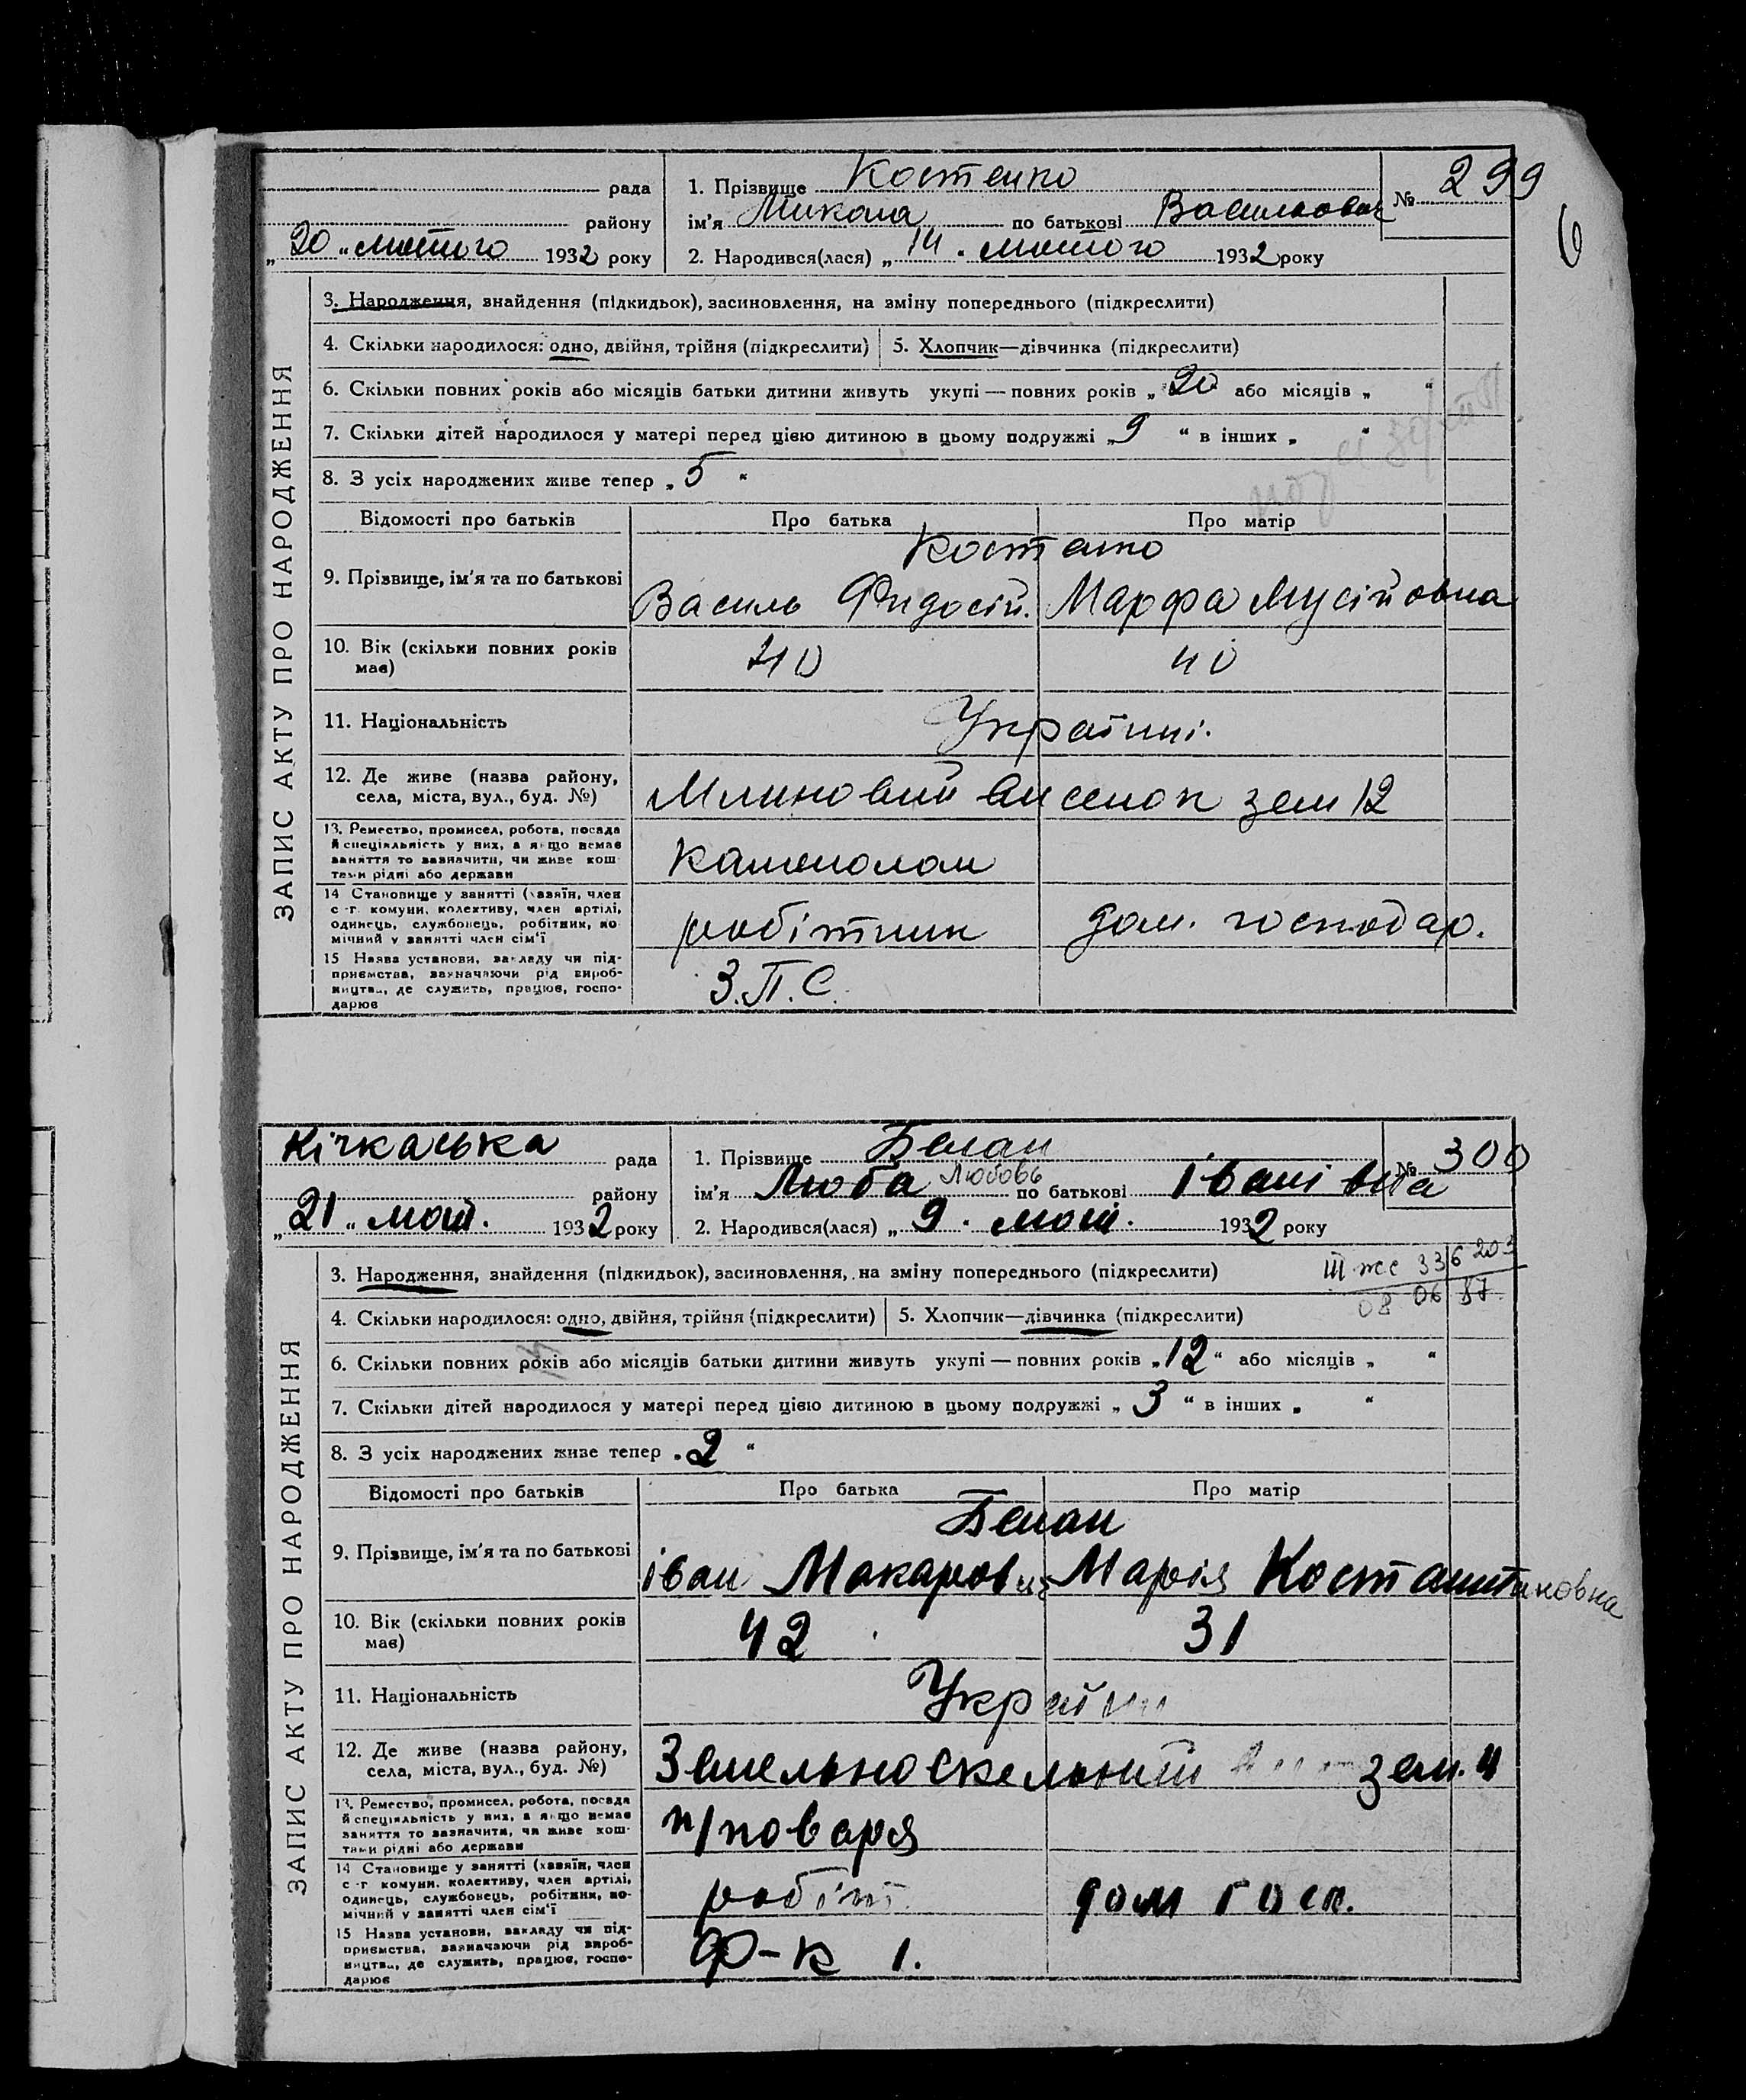 рада
району
„20" лютого 1932 року
1. Прізвище Костенко
ім'я Микола по батькові Васильович
2. Народився(лася) „14" лютого 1932 року
№ 299
6
ЗАПИС АКТУ ПРО НАРОДЖЕННЯ
3. Народження, знайдення (підкидьок), засиновлення, на зміну попереднього (підкреслити)
4. Скільки народилося: одно, двійня, трійня (підкреслити) 5. Хлопчик—дівчинка (підкреслити)
6. Скільки повних років або місяців батьки дитини живуть укупі — повних років „20 або місяців „ "
7. Скільки дітей народилося у матері перед цією дитиною в цьому подружжі „9 " в інших „ "
8. З усіх народжених живе тепер „5 "
Відомості про батьків Про батька Про матір
Костенко
9. Прізвище, ім'я та по батькові Василь Фидосій. Марфа Мусійовна
10. Вік (скільки повних років має) 40 40
11. Національність Україниі.
12. Де живе (назва району, села, міста, вул., буд. №) Млиновий виселок зем 12
13. Ремество, промисел, робота, посада й спеціяльність у них, а якщо немає заняття то зазначити, чи живе коштами рідні або держави каменолом
14 Становище у занятті (хазяїн, член с.-г. комуни, колективу, член артілі, одинець, службовець, робітник, помічний у занятті член сім'ї робітник дом. господар.
15 Назва установи, закладу чи підприємства, зазначаючи рід виробництва, де служить, працює, господарює З.П.С.
Кічкаська рада
району
„21" лют. 1932 року
1. Прізвище Белан
ім'я Люба Любовь по батькові Іванівна
2. Народився(лася) „9" лют. 1932 року
№ 300
ІІІ же 336203
08 06 87.
ЗАПИС АКТУ ПРО НАРОДЖЕННЯ
3. Народження, знайдення (підкидьок), засиновлення, на зміну попереднього (підкреслити)
4. Скільки народилося: одно, двійня, трійня (підкреслити) 5. Хлопчик—дівчинка (підкреслити)
6. Скільки повних років або місяців батьки дитини живуть укупі — повних років „12" або місяців „ "
7. Скільки дітей народилося у матері перед цією дитиною в цьому подружжі „ 3 " в інших „ "
8. З усіх народжених живе тепер „2 "
Відомості про батьків Про батька Про матір
Белан
9. Прізвище, ім'я та по батькові іван Макарович Марія Костантиновна
10. Вік (скільки повних років має) 42 31
11. Національність Україн
12. Де живе (назва району, села, міста, вул., буд. №) Земельноскельний зем. 4
13. Ремество, промисел, робота, посада й спеціяльність у них, а якщо немає заняття то зазначити, чи живе коштами рідні або держави п/поваря
14 Становище у занятті (хазяїн, член с.-г. комуни, колективу, член артілі, одинець, службовець, робітник, помічний у занятті член сім'ї робіт. дом госп.
15 Назва установи, закладу чи підприємства, зазначаючи рід виробництва, де служить, працює, господарює Ф-к 1.